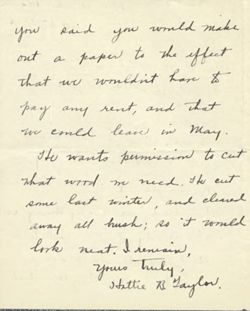 you said you would make
out a paper to the effect
that we wouldn't have to
pay any rent, and that
we could leave in May.
He wants permission to cut
what wood we need. He cut
some last winter, and cleared
away all brush; so it would
look neat. I remain,
Yours truly,
Hattie B Taylor.